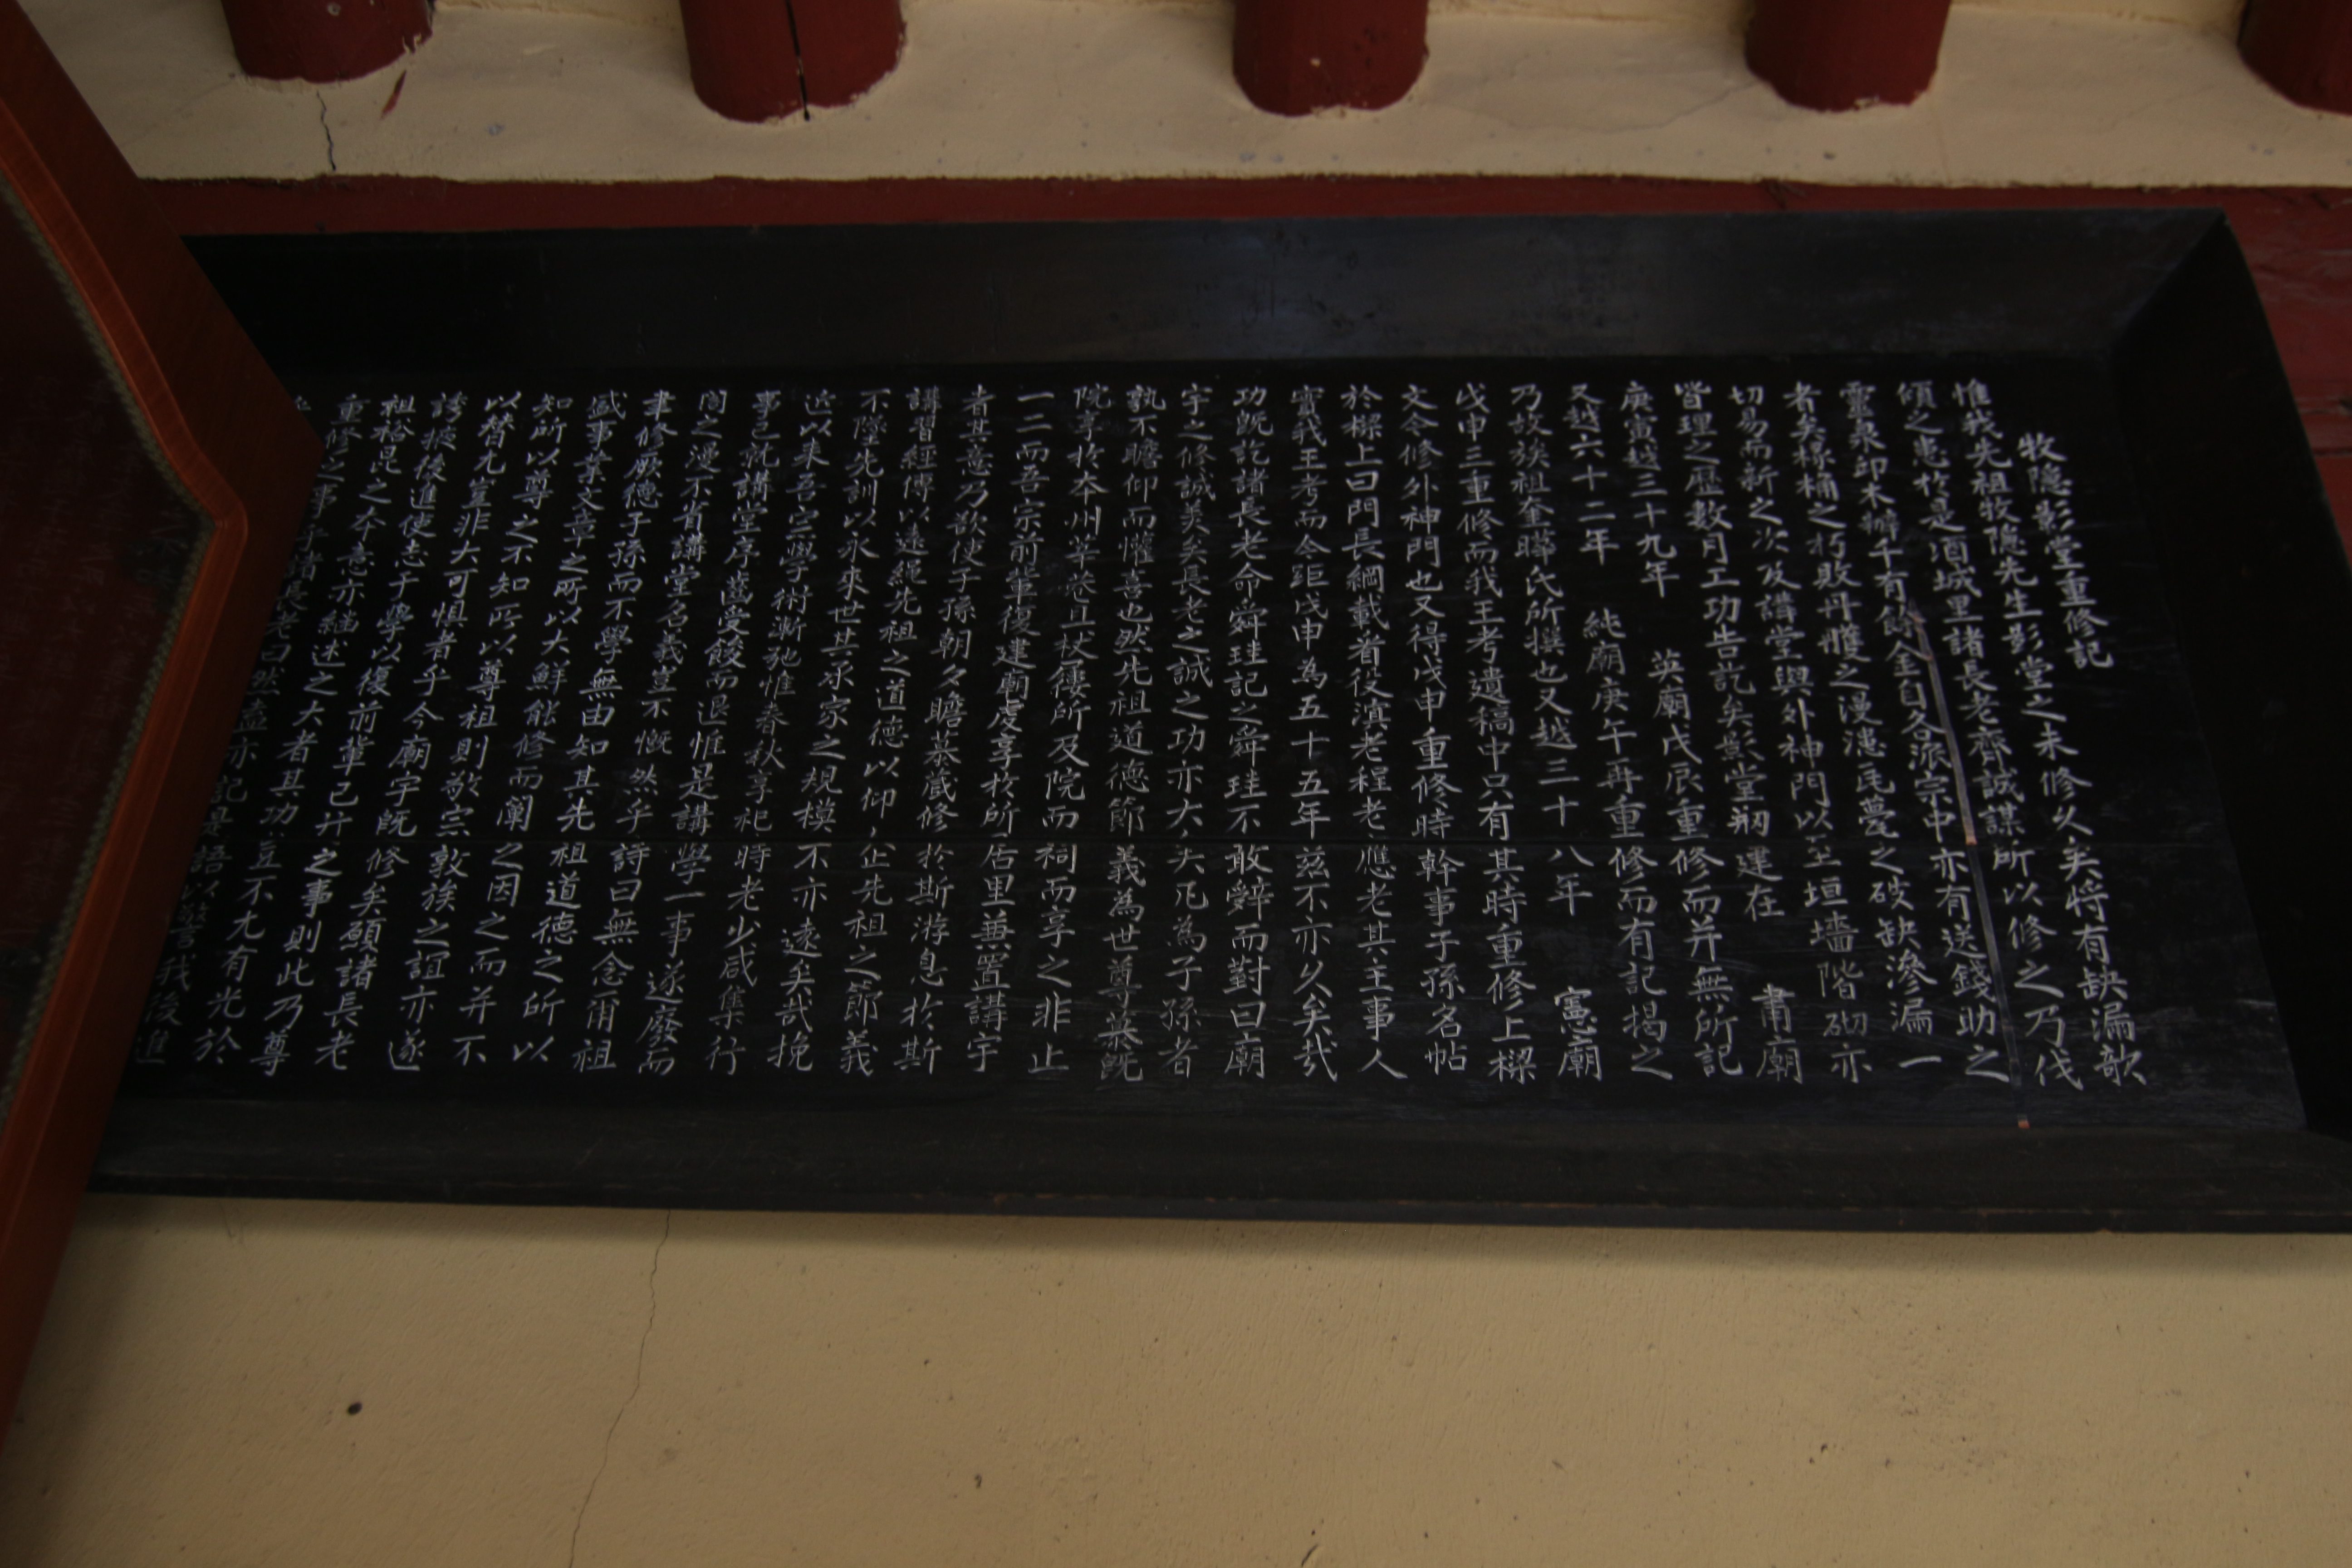 牧隱影堂重修記
惟我先祖牧隱先生影堂之未修久矣將有缺漏欹
傾之患於是項城里諸長老齊誠謀所以修之乃伐
靈泉卬木辦千有餘金自各派宗中亦有送錢助之
者矣椽桷之朽敗丹雘之漫漶瓦甍之破缺滲漏一
切易而新之次及講堂與外神門以至垣墻階砌亦
皆理之歷數月工功告訖矣影堂剏建在 肅廟
庚寅越三十九年 英廟戊辰重修而并無所記
又越六十二年 純廟庚午再重修而有記揭之
乃故族祖奎曄氏所撰也又越三十八年 憲廟
戊申三重修而我王考遺稿中只有其時重修上樑
文今修外神門也又得戊申重修時幹事子孫名帖
於樑上曰門長綱載者役濱老程老應老其主事人
實我王考而今距戊申為五十五年茲不亦久矣哉
功既訖諸長老命舜珪記之舜珪不敢辭而對曰廟
宇之修誠美矣長老之誠之功亦大矣凡為子孫者
孰不瞻仰而懽喜也然先祖道德節義為世尊慕既
院享於本州莘巷且杖屨所及院而祠而享之非止
一二而吾宗前輩復建廟虔享於所居里兼置講宇
者其意乃欲使子孫朝夕瞻慕藏修於斯游息於斯
講習經傳以遠繩先祖之道德以仰企先祖之節義
不墜先訓以永來世其承家之規模不亦遠矣哉挽
近以来吾宗學術漸弛惟春秋享祀時老少咸集行
事已就講堂序齒受餕而退惟是講學一事遂廢而
閣之漫不省講堂名義豈不慨然乎詩曰無念爾祖
聿修厥德子孫而不學無由知其先祖道德之所以
盛事業文章之所以大鮮能修而闡之因之而并不
知所以尊之不知所以尊祖則敬宗敦族之誼亦遂
以替尤豈非大可惧者乎今廟宇既修矣願諸長老
誇掖後進使志于學以復前輩已行之事則此乃尊
祖裕昆之本意亦繼述之大者其功豈不尤有光於
重修之事乎諸長老曰然盍亦記是語以警我後進